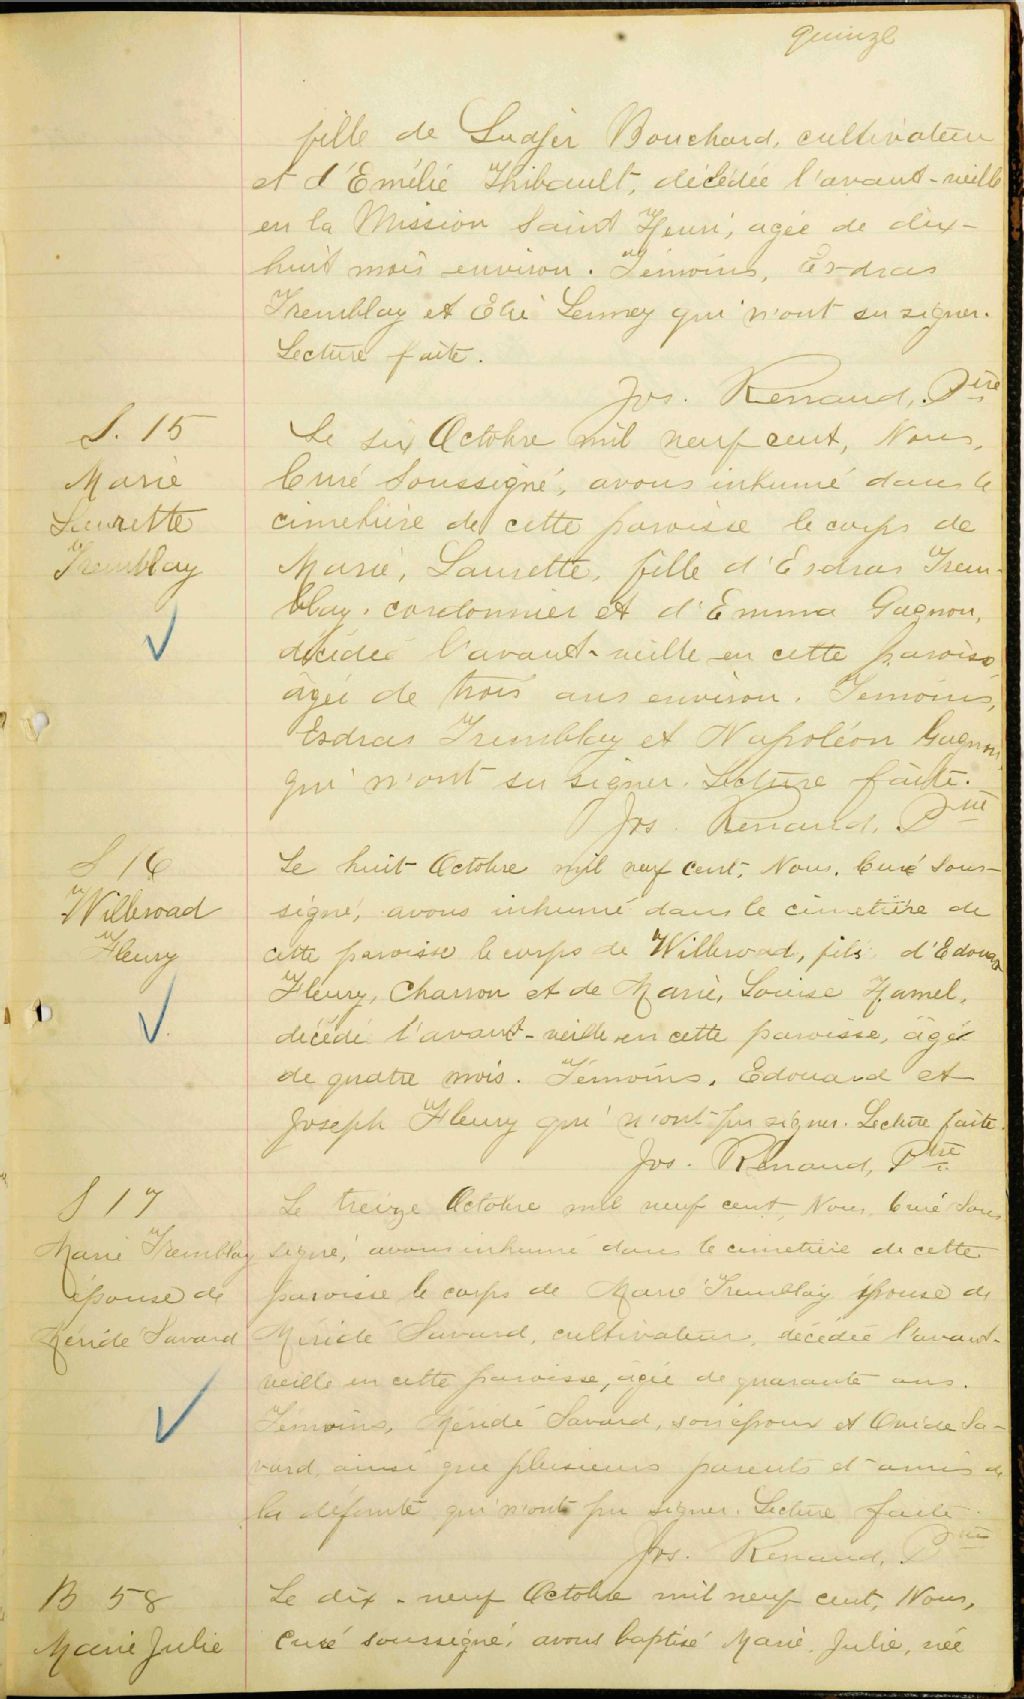 quinze
fille de Ludger Bouchard, cultivateur
et d'Emélie Thibault, décédée l'avant-veille
en la Mission Saint Henri, agée de dix-
huit mois environ. Témoins, Esdras
Tremblay et Elie Lemey qui n'ont su signer.
Lecture faite.
Jos. Renaud, Ptre
S. 15
Marie
Laurette
Tremblay
Le six Octobre mil neuf cent, Nous,
Curé Soussigné, avons inhumé dans le
cimetière de cette paroisse le corps de
Marie, Laurette, fille d'Esdras Trem-
blay, cordonnier et d'Emma Gagnon,
décédée l'avant-veille en cette paroisse
âgée de trois ans environ. Témoins,
Esdras Tremblay et Napoléon Gagnon,
qui n'ont su signer. Lecture faite.
Jos. Renaud, Ptre
S 16
Wilbroad
Fleury
Le huit Octobre mil neuf cent, Nous, Curé Sous-
signé, avons inhumé dans le cimetière de
cette paroisse le corps de Wilbroad, fils d'Edouard
Fleury, Charron et de Marie, Louise Hamel,
décédé l'avant-veille en cette paroisse, âgé
de quatre mois. Témoins, Edouard et
Joseph Fleury qui n'ont pu signer. Lecture faite.
Jos. Renaud, Ptre
S 17
Marie Tremblay
épouse de
Méridé Savard
Le treize Octobre mil neuf cent, Nous, Curé Sous
signé, avons inhumé dans le cimetière de cette
paroisse le corps de Marie Tremblay épouse de
Méridé Savard, cultivateur, décédée l'avant-
veille en cette paroisse, âgée de quarante ans.
Témoins, Méridé Savard, son époux et Ovide Sa-
vard, ainsi que plusieurs parents et amis de
la défunte qui n'ont pu signer. Lecture faite.
Jos. Renaud, Ptre
B 58
Marie Julie
Le dix-neuf Octobre mil neuf cent, Nous,
curé soussigné, avons baptisé Marie, Julie, née